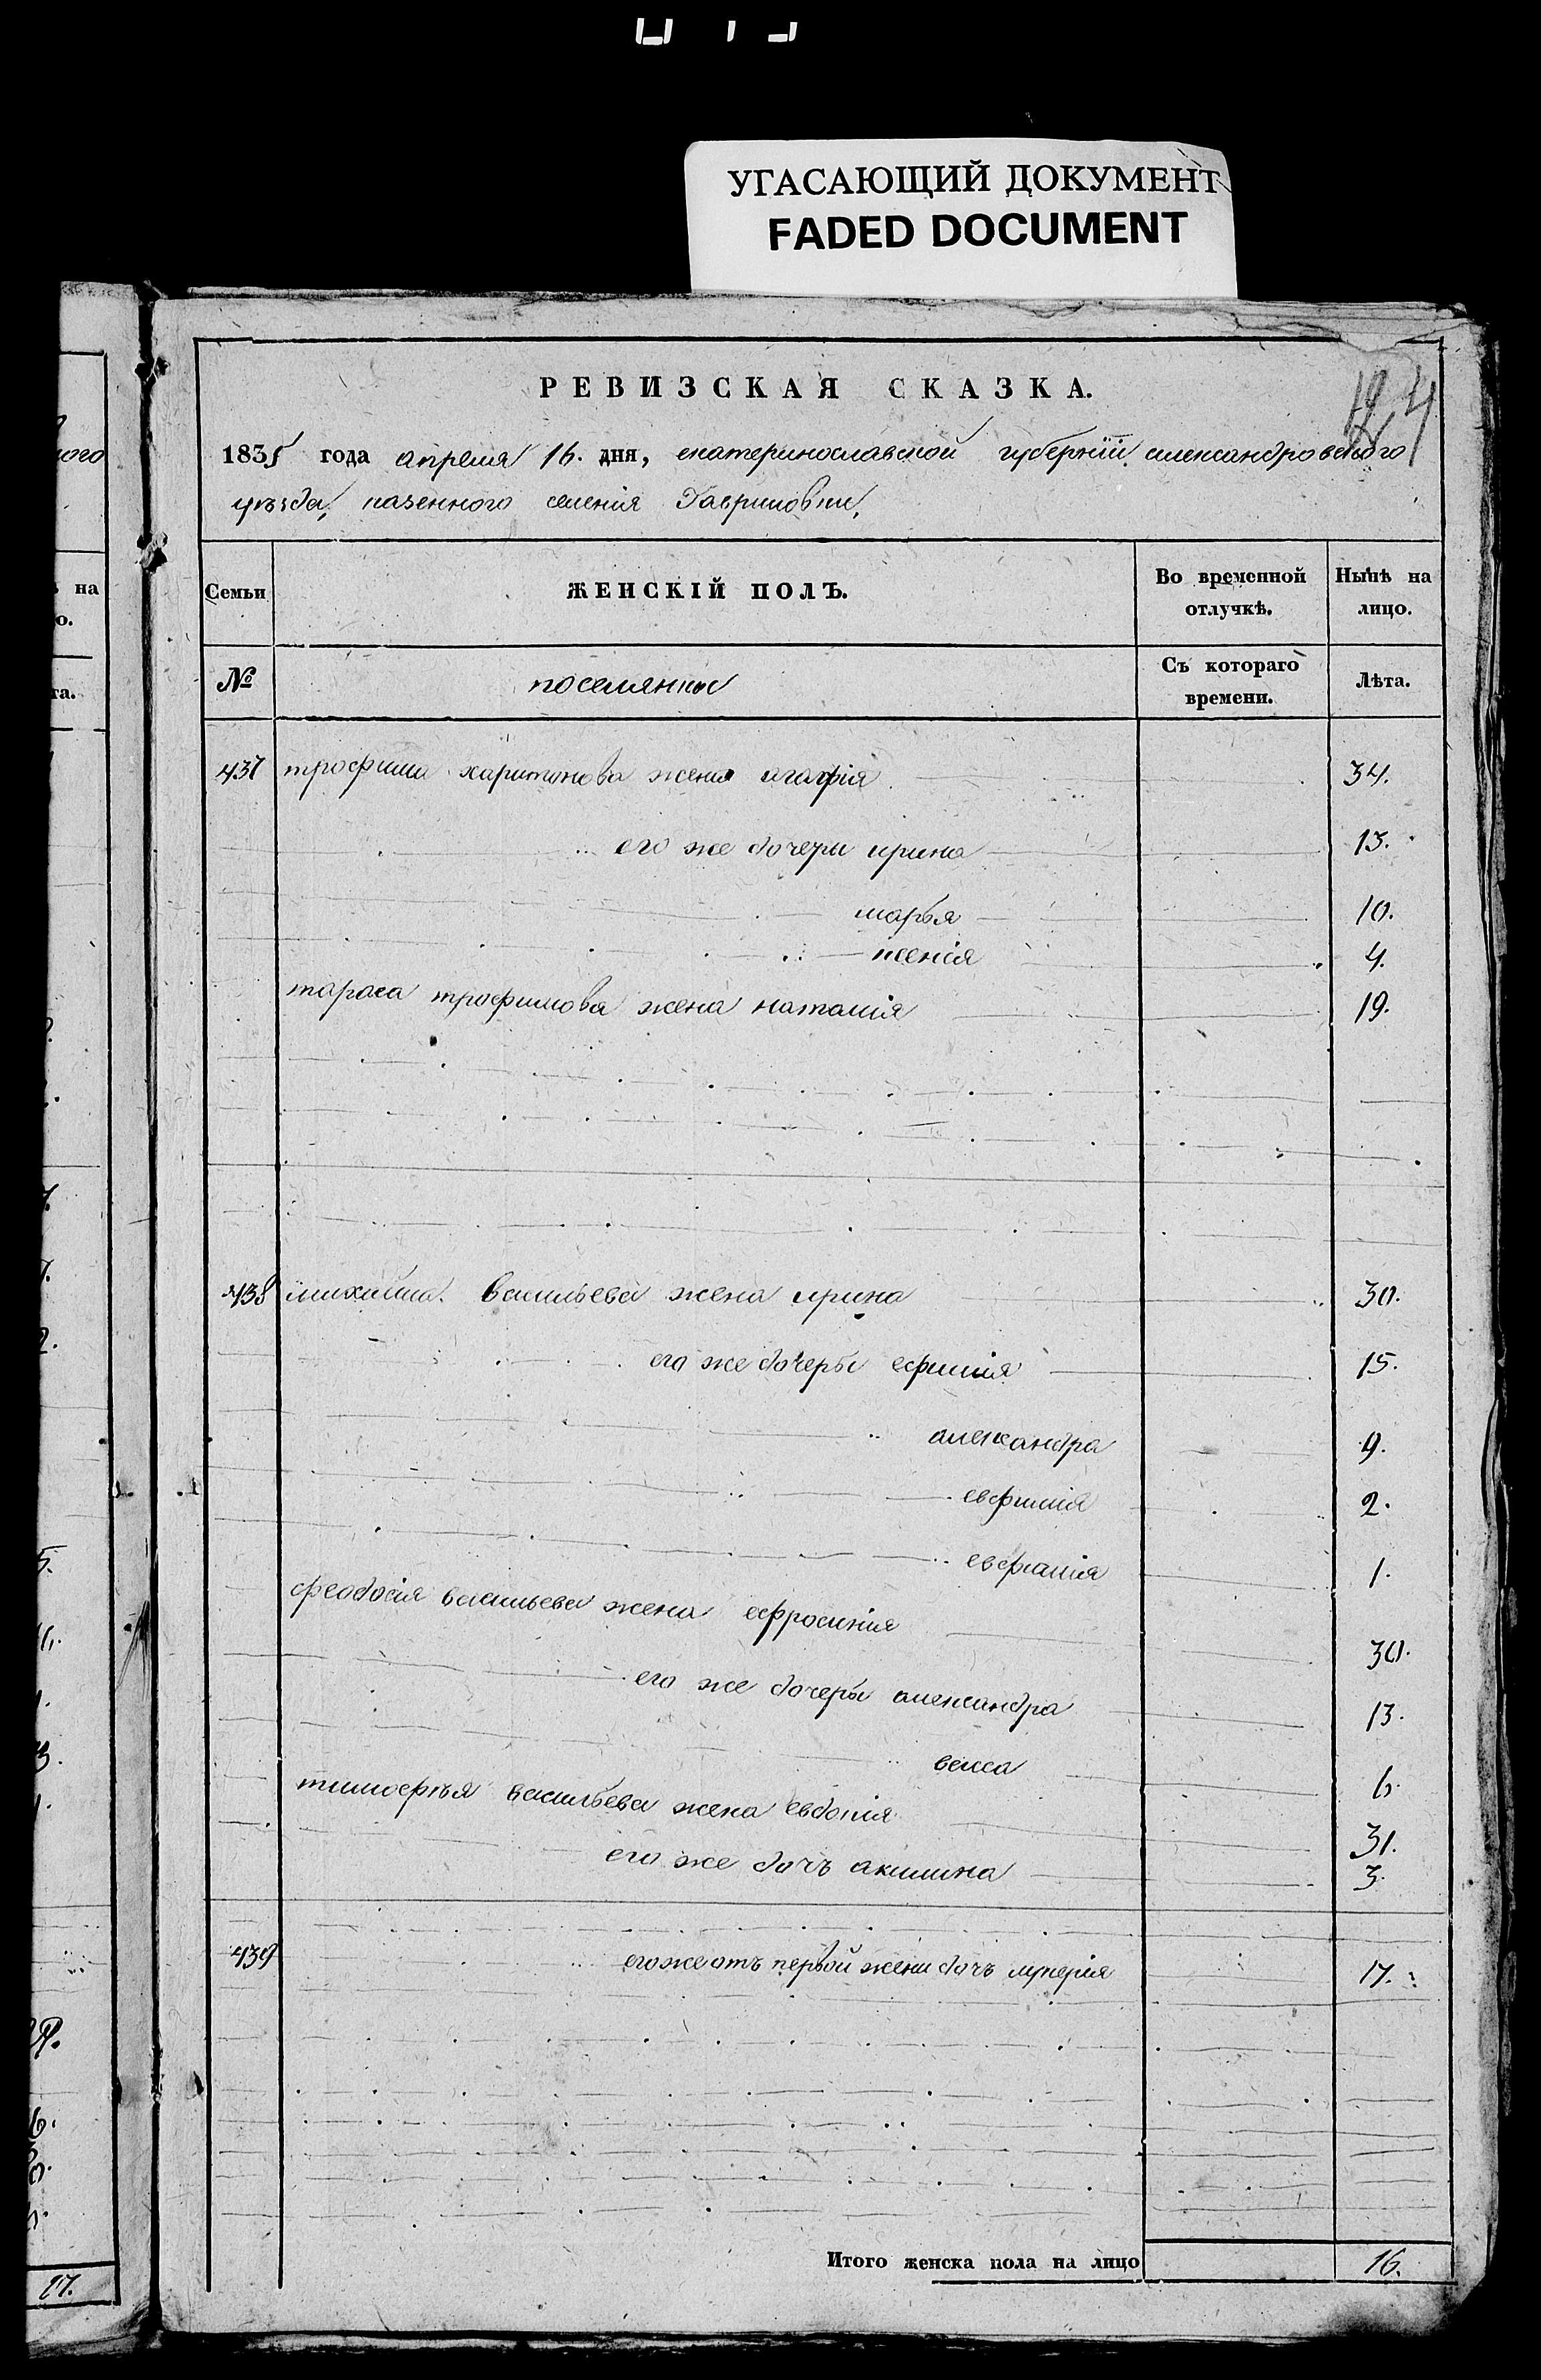 УГАСАЮЩИЙ ДОКУМЕНТ
FADED DOCUMENT
РЕВИЗСКАЯ СКАЗКА.
1835 года апреля 16. дня, екатеринославской губернїи, александровского
уѣзда, казенного селенія Гавриловки,
Семьи
ЖЕНСКІЙ ПОЛЪ.
Во временной отлучкѣ.
Нынѣ на лицо.
№
поселянки
Съ котораго времени.
Лѣта.
437 трофима харитонова жена агафія 34.
его же дочери ирина 13.
марья 10.
ксенія 4.
тараса трофимова жена наталія 19.
438 михайла васильева жена ирина 30.
его же дочеры ефимія 15.
александра 9.
евфимія 2.
1.
феодосія васильева жена ефросинія 30.
его же дочеры александра 13.
васса 6.
тимофѣя васильева жена евдокія 31.
его же дочъ акилина 3.
439 его же отъ первой жены дочъ лукерія 17.
Итого женска пола на лицо 16.
на
о.
та.
17.